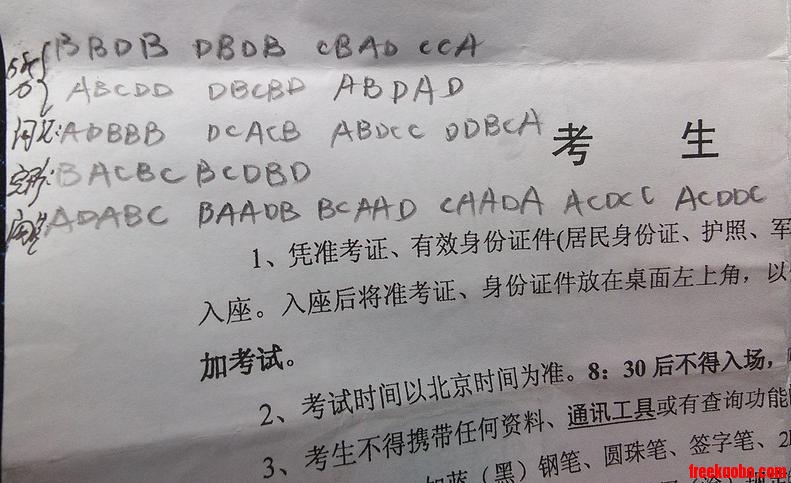 BBDB DBDB CBAD CCA
ABCDD DBCBD ABDAD
ADBBB DCACB ABDCC DDBCA
考 生
BACBC BCDBD
ADABC BAADB BCAAD CAADA ACDCC ACDDC
1、凭准考证、有效身份证件(居民身份证、护照、军
入座。入座后将准考证、身份证件放在桌面左上角，以
加考试。
2、考试时间以北京时间为准。8：30 后不得入场，
3、考生不得携带任何资料、通讯工具或有查询功能
蓝（黑）钢笔、圆珠笔、签字笔、2
freekuoba.com